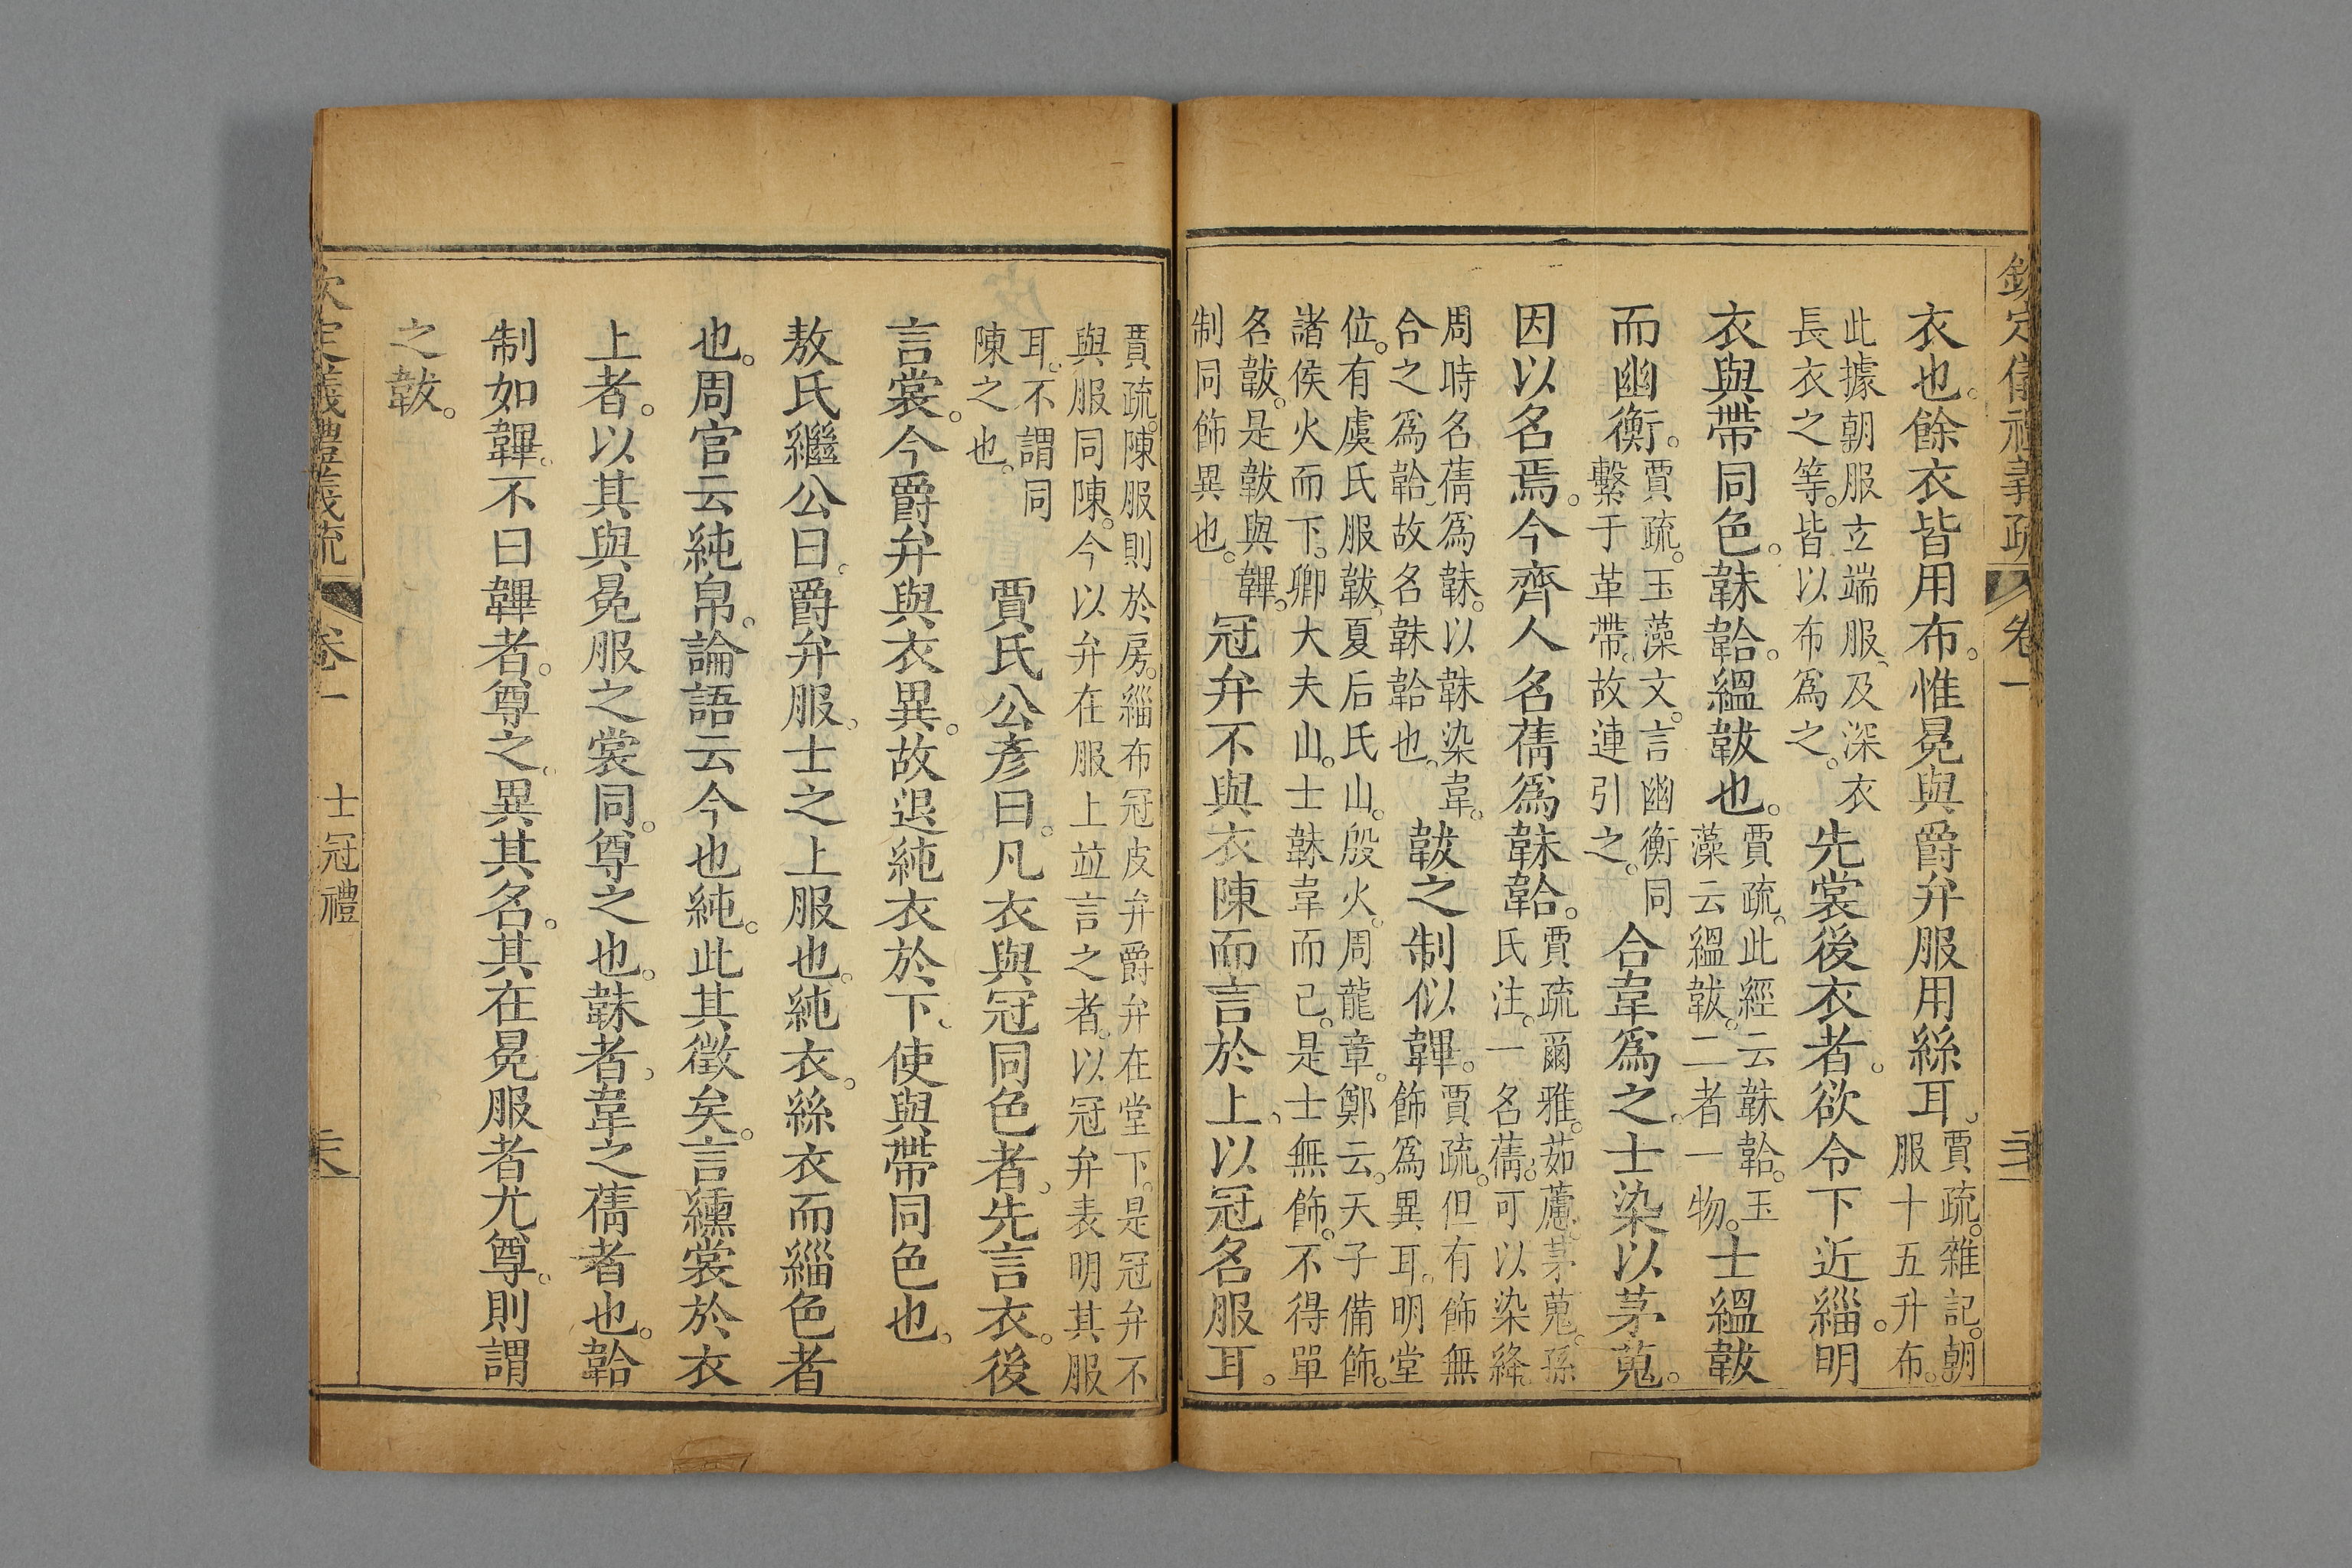 欽定儀禮義疏 卷一
衣也。餘衣皆用布。惟冕與爵弁服用絲耳。賈疏。雜記。朝
服十五升布。
此據朝服玄端服、及深衣
長衣之等。皆以布爲之。先裳後衣者。欲令下近緇。明
衣與帶同色。韎韐。縕韍也。賈疏。此經云韎韐。玉
藻云縕韍。二者一物。士縕韍
而幽衡。賈疏。玉藻文。言幽衡同
繫于革帶。故連引之。合韋爲之、士染以茅蒐。
因以名焉。今齊人名蒨爲韎韐。賈疏爾雅。茹藘。茅蒐。孫
氏注。一名蒨。可以染絳。
周時名蒨爲韎。以韎染韋。
合之爲韐、故名韎韐也。韍之制似韠。賈疏。但有飾無
飾爲異耳。明堂
位。有虞氏服韍、夏后氏山。殷火。周龍章。鄭云。天子備飾。
諸侯火而下。卿大夫山。士韎韋而已。是士無飾。不得單
名韍。是韍與韠。
制同飾異也。冠弁不與衣陳而言於上、以冠名服耳。
賈疏。陳服則於房。緇布冠皮弁爵弁在堂下。是冠弁不
與服同陳。今以弁在服上並言之者。以冠弁表明其服
耳。不謂同
陳之也。賈氏公彥曰。凡衣與冠同色者、先言衣。後
言裳。今爵弁與衣異。故退純衣於下、使與帶同色也。
敖氏繼公曰。爵弁服、士之上服也。純衣。絲衣而緇色者
也。周官云純帛。論語云今也純。此其徵矣。言纁裳於衣
上者。以其與冕服之裳同。尊之也。韎者、韋之蒨者也。韐
制如韠。不曰韠者。尊之。異其名。其在冕服者尤尊。則謂
之韍。
欽定義禮義疏 卷一 士冠禮